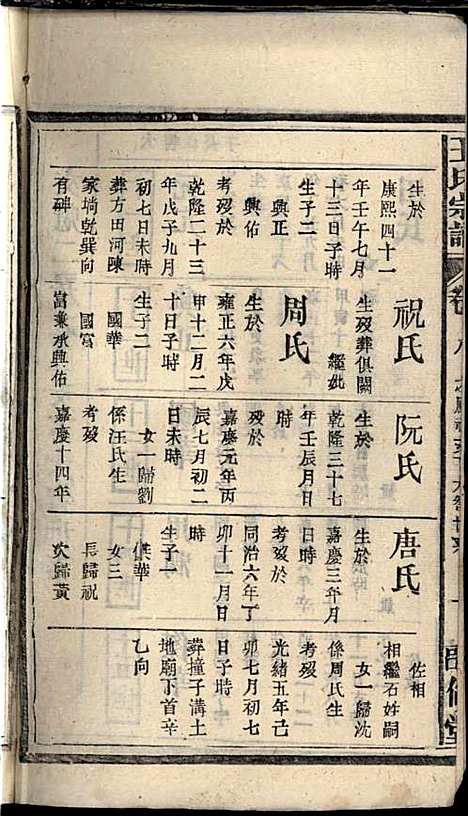 王氏宗譜
卷八
生於
康熙四十一
年壬午七月
十三日子時
生子二
興正
興佑
考歿於
乾隆二十三
年戊子九月
初七日未時
葬方田河陳
家埫乾巽向
有碑
祝氏
生歿葬俱闕
繼妣
周氏
生於
雍正六年戊
申十二月二
十日子時
生子二
國華
國富
富兼承興佑
阮氏
生於
乾隆三十七
年壬辰月日
時
歿於
嘉慶元年丙
辰七月初二
日未時
女一歸劉
係汪氏生
考歿
嘉慶十四年
唐氏
生於
嘉慶三年月
日時
考歿於
同治六年丁
卯十一月日
時
生子一
供華
女三
長歸祝
次歸黃
佐相
相繼石姓嗣
女一歸沈
係周氏生
考歿
光緒五年己
卯七月初七
日子時
葬撞子溝土
地廟下首辛
乙向